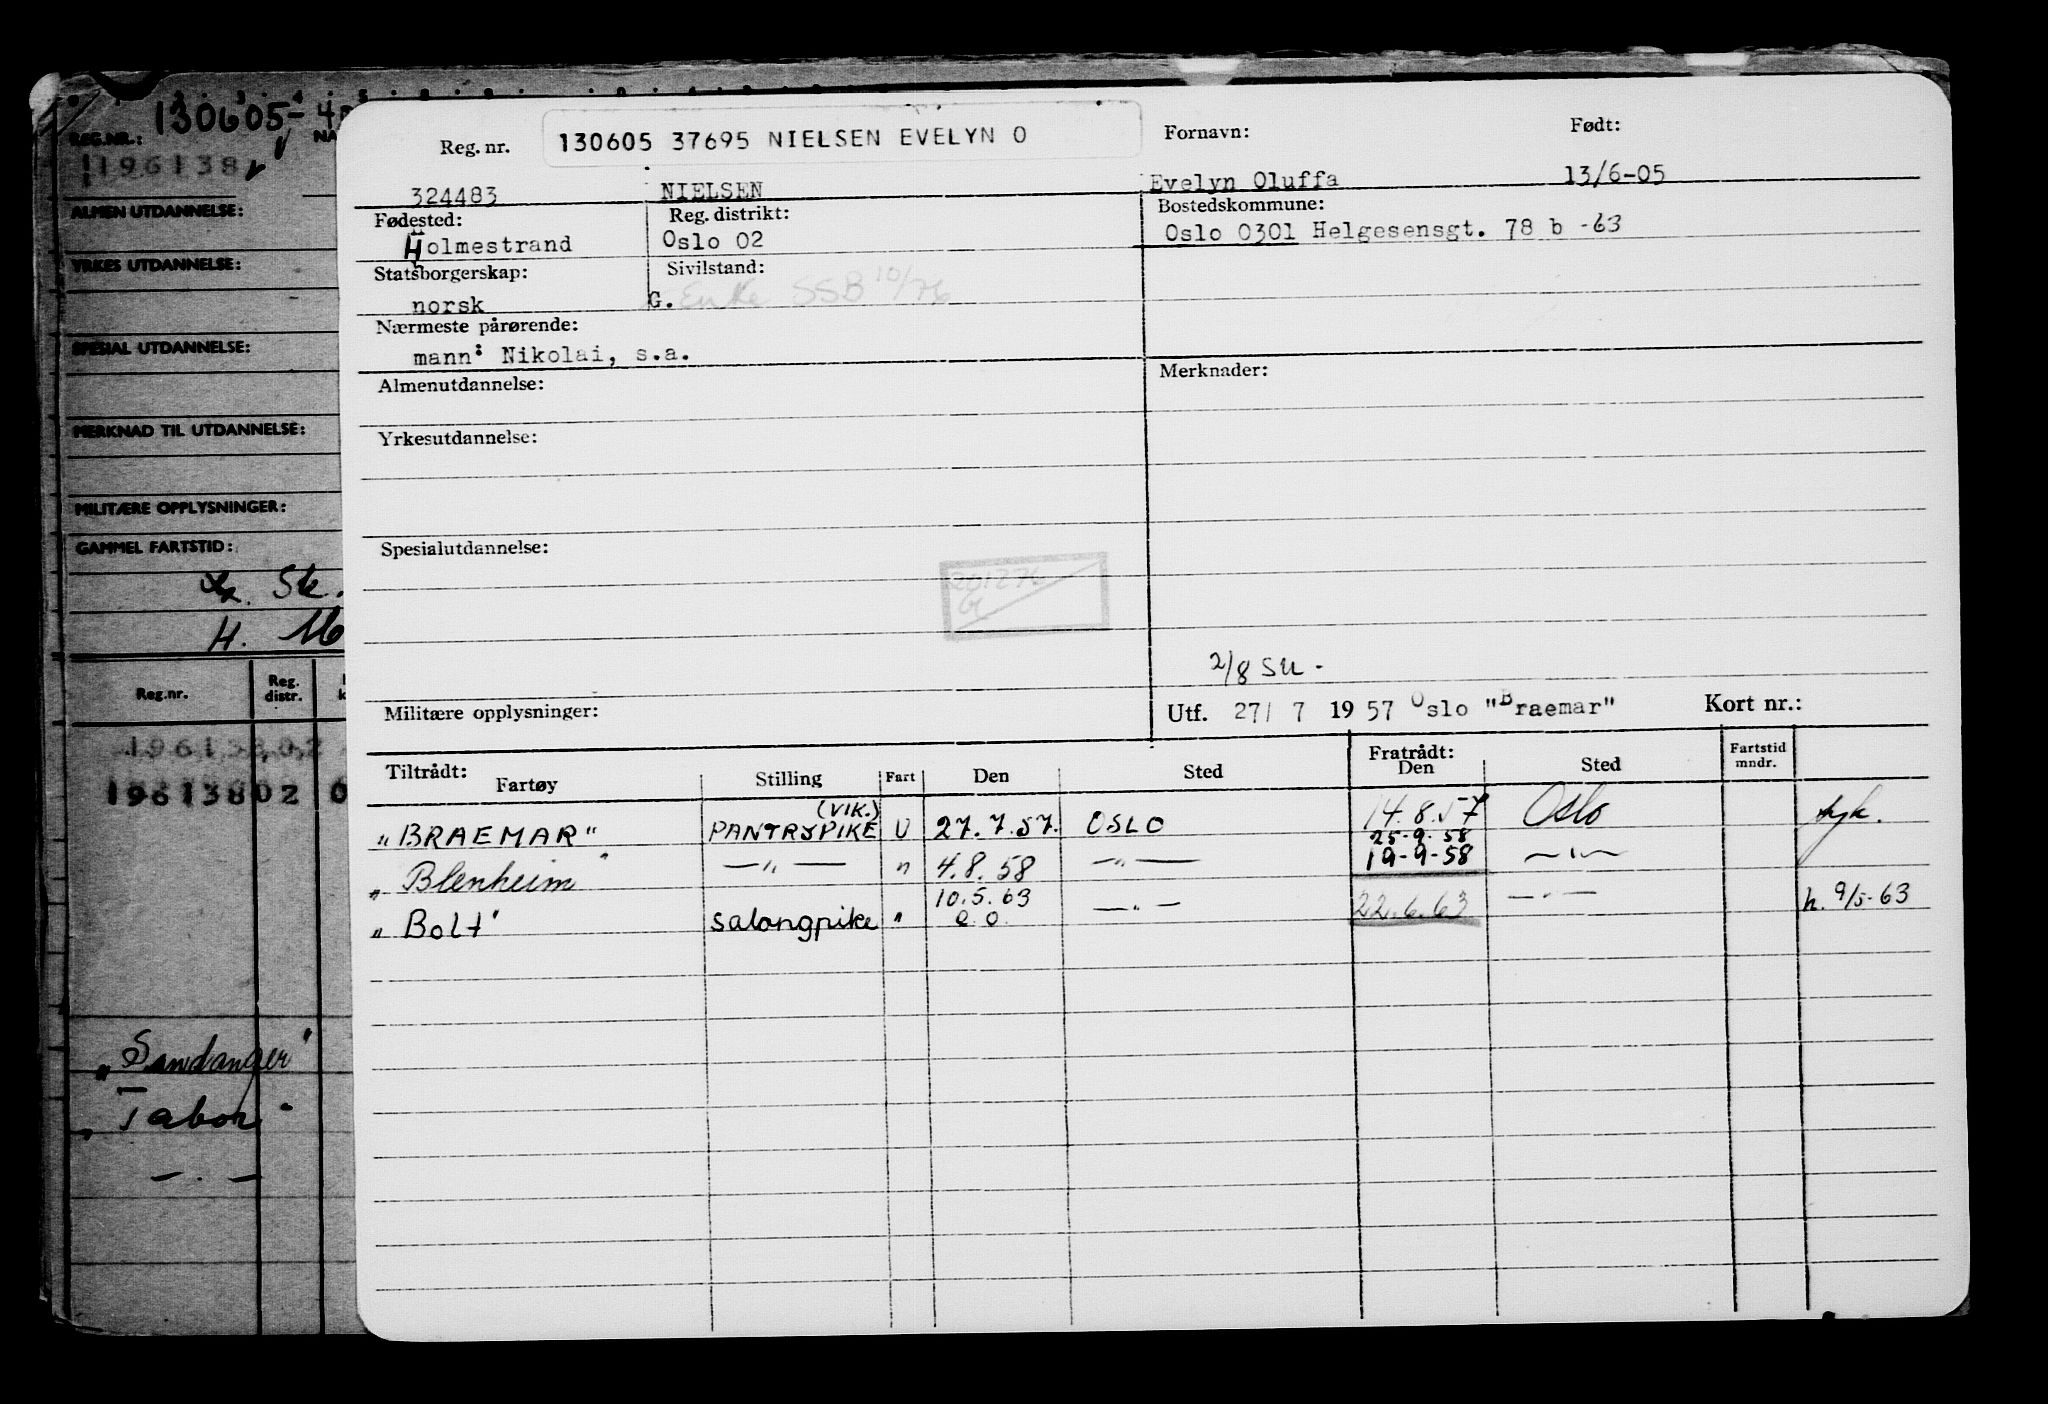 130605-
REG.NR.:
196138
ALMEN UTDANNELSE:
YRKES UTDANNELSE:
SPESIAL UTDANNELSE:
MERKNAD TIL UTDANNELSE:
MILITÆRE OPPLYSNINGER:
GAMMEL FARTSTID:
Reg.nr. Reg. distr.
196138 02
19613802 0
"Sandanger"
"Tabor"
— . —
Reg. nr. 130605 37695 NIELSEN EVELYN O Fornavn: Født:
324483 NIELSEN Evelyn Oluffa 13/6-05
Fødested: Reg. distrikt: Bostedskommune:
Holmestrand Oslo 02 Oslo 0301 Helgesensgt. 78 b -63
Statsborgerskap: Sivilstand:
norsk G. Enke SSB 10/76
Nærmeste pårørende:
mann: Nikolai, s.a.
Almenutdannelse: Merknader:
Yrkesutdannelse:
Spesialutdannelse:
201276
2/8 SU -
Militære opplysninger: Utf. 27/ 7 1957 Oslo "Braemar" Kort nr.:
Tiltrådt: Fartøy Stilling Fart Den Sted Fratrådt: Den Sted Fartstid mndr.
"BRAEMAR" (VIK.) PANTRYPIKE U 27.7.57. OSLO 14.8.57 Oslo syk.
25-9-58
"Blenheim" —"— " 4.8.58 —"— 19-9-58 —"—
10.5.63
"Bolt" salongpike " e.o. —"— 22.6.63 —"— h. 9/5-63